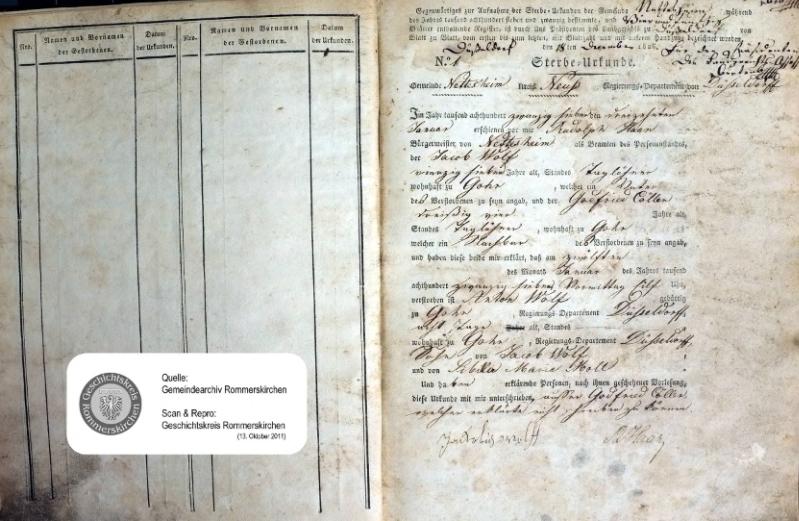 Nro.
Namen und Vornamen
der Gestorbenen.
Datum
der Urkunden.
Nro.
Namen und Vornamen
der Gestorbenen.
Datum
der Urkunden.
Quelle:
Gemeindearchiv Rommerskirchen
Scan & Repro:
Geschichtskreis Rommerskirchen
(13. Oktober 2011)
Geschichtskreis
Rommerskirchen
Gegenwärtiges zur Aufnahme der Sterbe-Urkunden der Gemeinde Nettesheim während
des Jahres tausend achthundert sieben und zwanzig bestimmte, und
Blätter enthaltende Register, ist durch uns Präsidenten des Landgerichts zu Düsseldorf
von Blatt zu Blatt, vom ersten bis zum letzten, mit
Düsseldorf den Dezember 1826.
No. 1 Sterbe-Urkunde.
Gemeinde Nettesheim Kreis Neuß Regierungs-Departement von Düsseldorf
Im Jahr tausend achthundert zwanzig sieben den dreizehnten
Januar erschienen vor mir
Bürgermeister von Nettesheim als Beamten des Personenstandes,
der Jacob Wolf
vierzig sieben Jahre alt, Standes Taglöhner
wohnhaft zu Gohr, welcher ein Vater
des Verstorbenen zu seyn angab, und der Godfried Cöller
dreißig vier Jahre alt,
Standes Taglöhner, wohnhaft zu Gohr
welcher ein Nachbar des Verstorbenen zu seyn angab,
und haben diese beide mir erklärt, daß am zwölften
des Monats Januar des Jahres tausend
achthundert zwanzig sieben Vormittag elf Uhr,
verstorben ist Anton Wolf gebürtig
zu Gohr, Regierungs-Departement Düsseldorf,
acht Tage Jahre alt, Standes
wohnhaft zu Gohr, Regierungs-Departement Düsseldorf,
Sohn von Jacob Wolf
und von Sibilla Maria Moll
Und haben erklärende Personen, nach ihnen geschehener Vorlesung,
diese Urkunde mit mir unterschrieben, außer Godfried Cöller
welcher erklärte nicht schreiben zu können